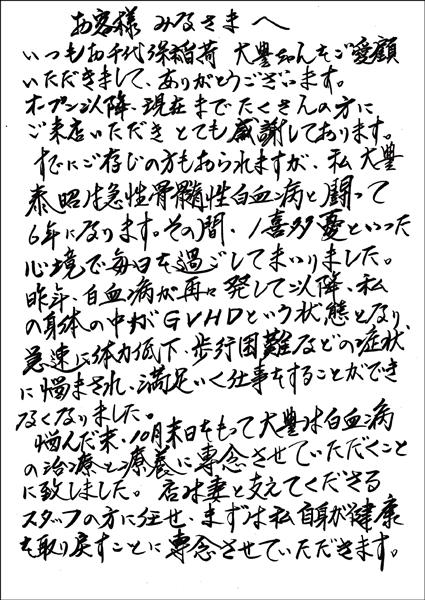 お客様 みなさまへ
いつもお千代保稲荷 大豊ちゃんをご愛顧
いただきまして、ありがとうございます。
オープン以降、現在までたくさんの方に
ご来店いただき とても感謝しております。
すでにご存じの方もおられますが、私 大豊
泰昭は急性骨髄性白血病と闘って
6年になります。その間、1喜多憂といった
心境で毎日を過ごしてまいりました。
昨年、白血病が再々発して以降、私
の身体の中がGVHDという状態となり
急速に体力低下、歩行困難などの症状
に悩まされ、満足いく仕事をすることができ
なくなりました。
悩んだ末、10月末日をもって大豊は白血病
の治療と療養に専念させていただくこと
に致しました。店は妻と支えてくださる
スタッフの方に任せ、まずは私自身が健康
を取り戻すことに専念させていただきます。